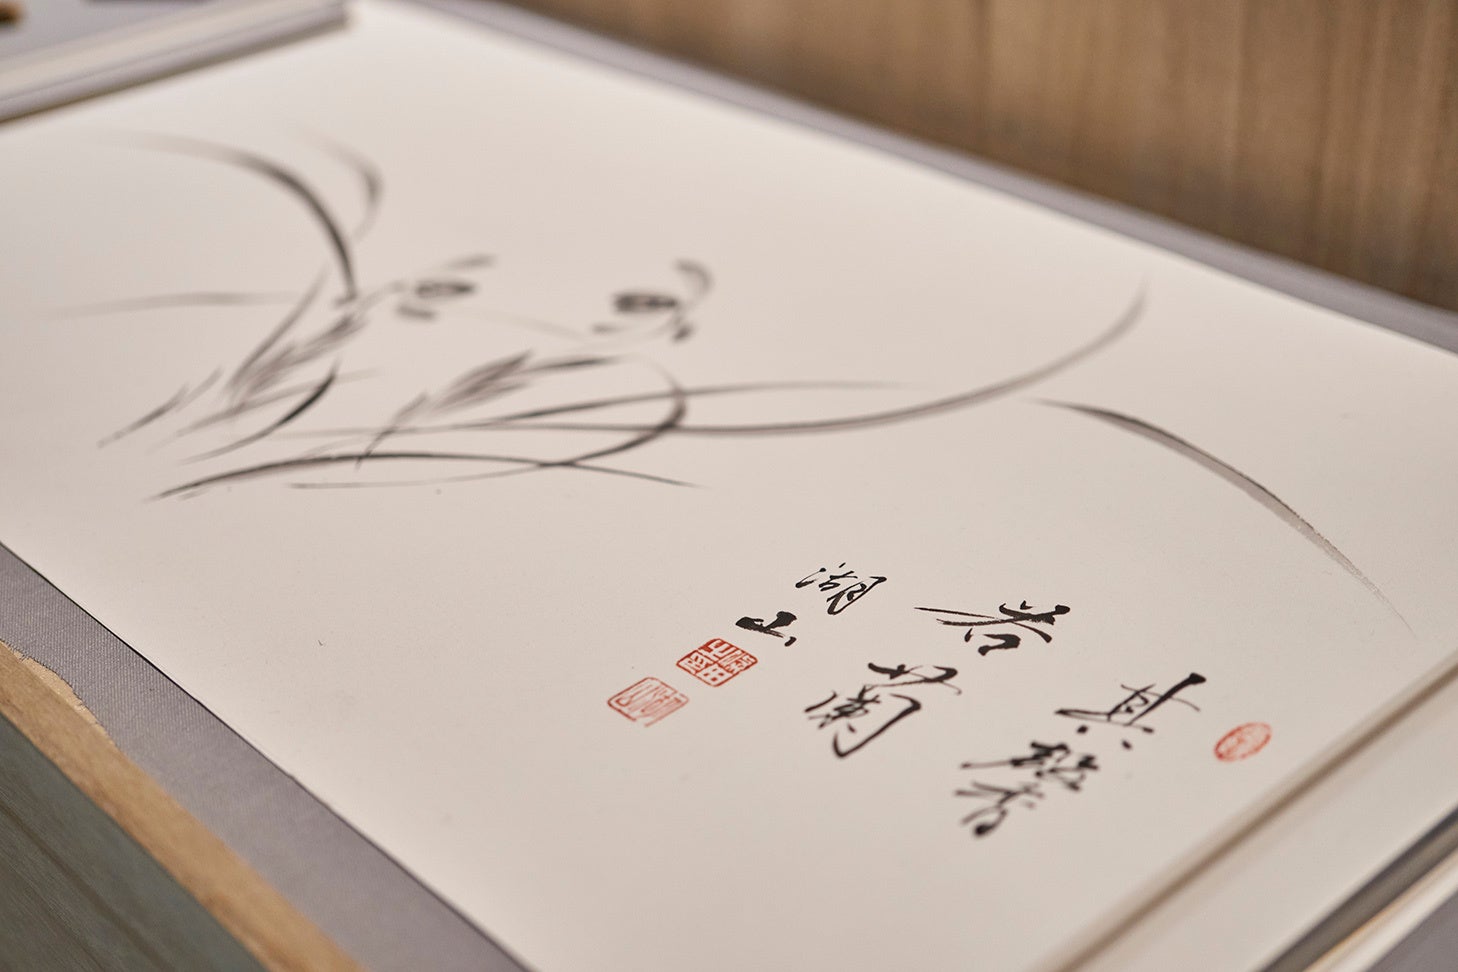 其馨
若蘭
湖山